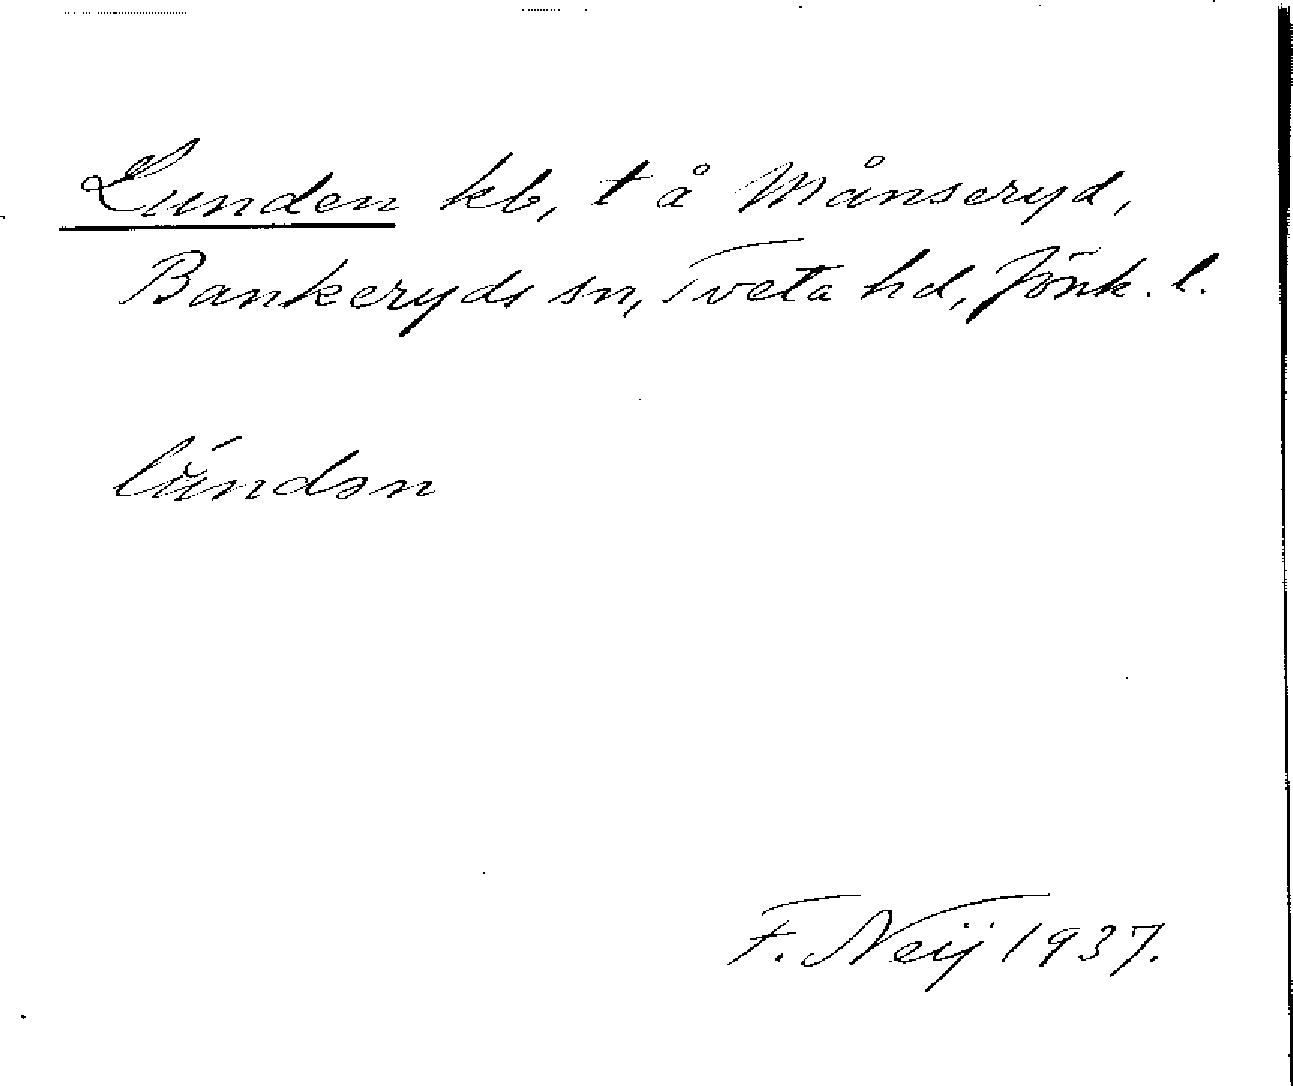 Lunden kb, t å Månseryd,
Bankeryds sn, Tveta hd, Jönk. l.
lúndən
F. Neij 1937.